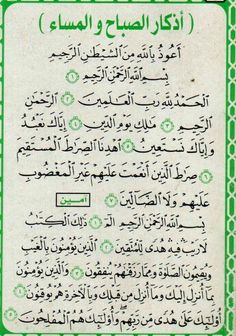 ( أذكار الصباح و المساء )
أَعُوذُ بِاللَّهِ مِنَ الشَّيْطَٰنِ الرَّجِيمِ
بِسْمِ اللَّهِ الرَّحْمَٰنِ الرَّحِيمِ ١
الْحَمْدُ لِلَّهِ رَبِّ الْعَٰلَمِينَ ٢ الرَّحْمَٰنِ
الرَّحِيمِ ٣ مَٰلِكِ يَوْمِ الدِّينِ ٤ إِيَّاكَ نَعْبُدُ
وَإِيَّاكَ نَسْتَعِينُ ٥ اهْدِنَا الصِّرَٰطَ الْمُسْتَقِيمَ
٦ صِرَٰطَ الَّذِينَ أَنْعَمْتَ عَلَيْهِمْ غَيْرِ الْمَغْضُوبِ
عَلَيْهِمْ وَلَا الضَّالِّينَ ٧ آمين
بِسْمِ اللَّهِ الرَّحْمَٰنِ الرَّحِيمِ الٓمٓ ١ ذَٰلِكَ الْكِتَٰبُ
لَا رَيْبَ فِيهِ هُدًى لِّلْمُتَّقِينَ ٢ الَّذِينَ يُؤْمِنُونَ بِالْغَيْبِ
وَيُقِيمُونَ الصَّلَوٰةَ وَمِمَّا رَزَقْنَٰهُمْ يُنفِقُونَ ٣ وَالَّذِينَ يُؤْمِنُونَ
بِمَا أُنزِلَ إِلَيْكَ وَمَا أُنزِلَ مِن قَبْلِكَ وَبِالْآخِرَةِ هُمْ يُوقِنُونَ ٤
أُولَٰئِكَ عَلَىٰ هُدًى مِّن رَّبِّهِمْ وَأُولَٰئِكَ هُمُ الْمُفْلِحُونَ ٥